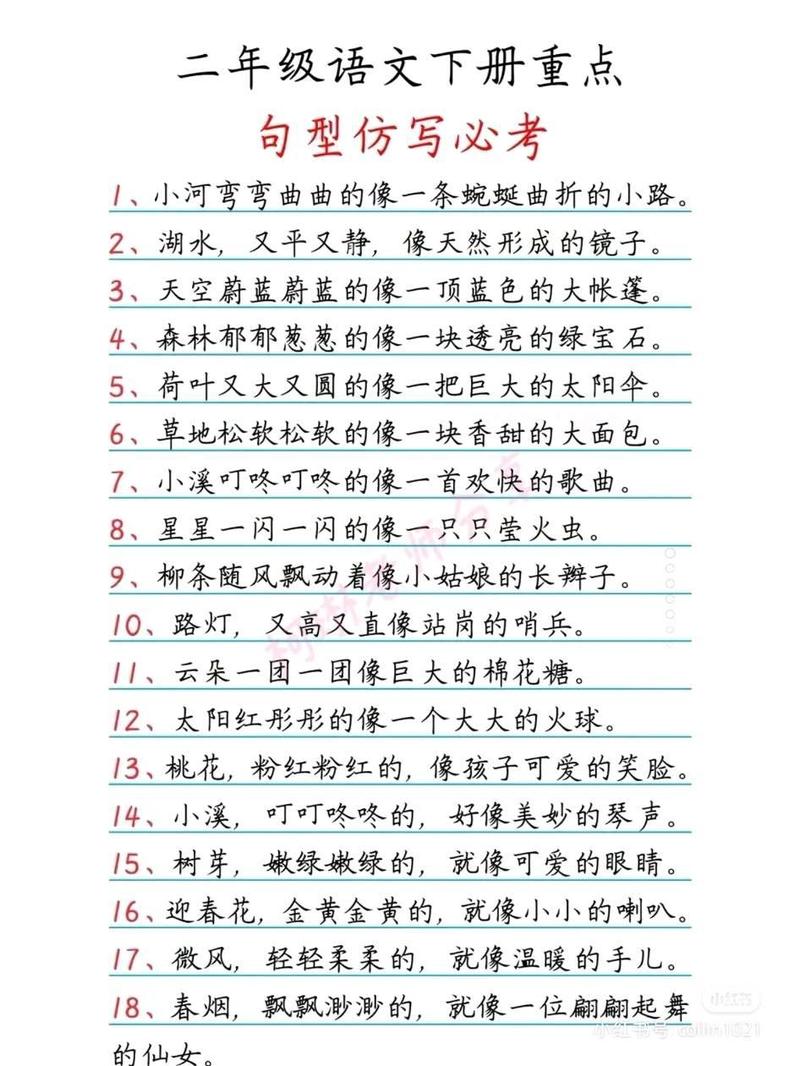 二年级语文下册重点
句型仿写必考
1、小河弯弯曲曲的像一条蜿蜒曲折的小路。
2、湖水，又平又静，像天然形成的镜子。
3、天空蔚蓝蔚蓝的像一顶蓝色的大帐篷。
4、森林郁郁葱葱的像一块透亮的绿宝石。
5、荷叶又大又圆的像一把巨大的太阳伞。
6、草地松软松软的像一块香甜的大面包。
7、小溪叮咚叮咚的像一首欢快的歌曲。
8、星星一闪一闪的像一只只莹火虫。
9、柳条随风飘动着像小姑娘的长辫子。
10、路灯，又高又直像站岗的哨兵。
11、云朵一团一团像巨大的棉花糖。
12、太阳红彤彤的像一个大大的火球。
13、桃花，粉红粉红的，像孩子可爱的笑脸。
14、小溪，叮叮咚咚的，好像美妙的琴声。
15、树芽，嫩绿嫩绿的，就像可爱的眼睛。
16、迎春花，金黄金黄的，就像小小的喇叭。
17、微风，轻轻柔柔的，就像温暖的手儿。
18、春烟，飘飘渺渺的，就像一位翩翩起舞
的仙女。
柯琳老师分享
小红书
小红书号 collin1021